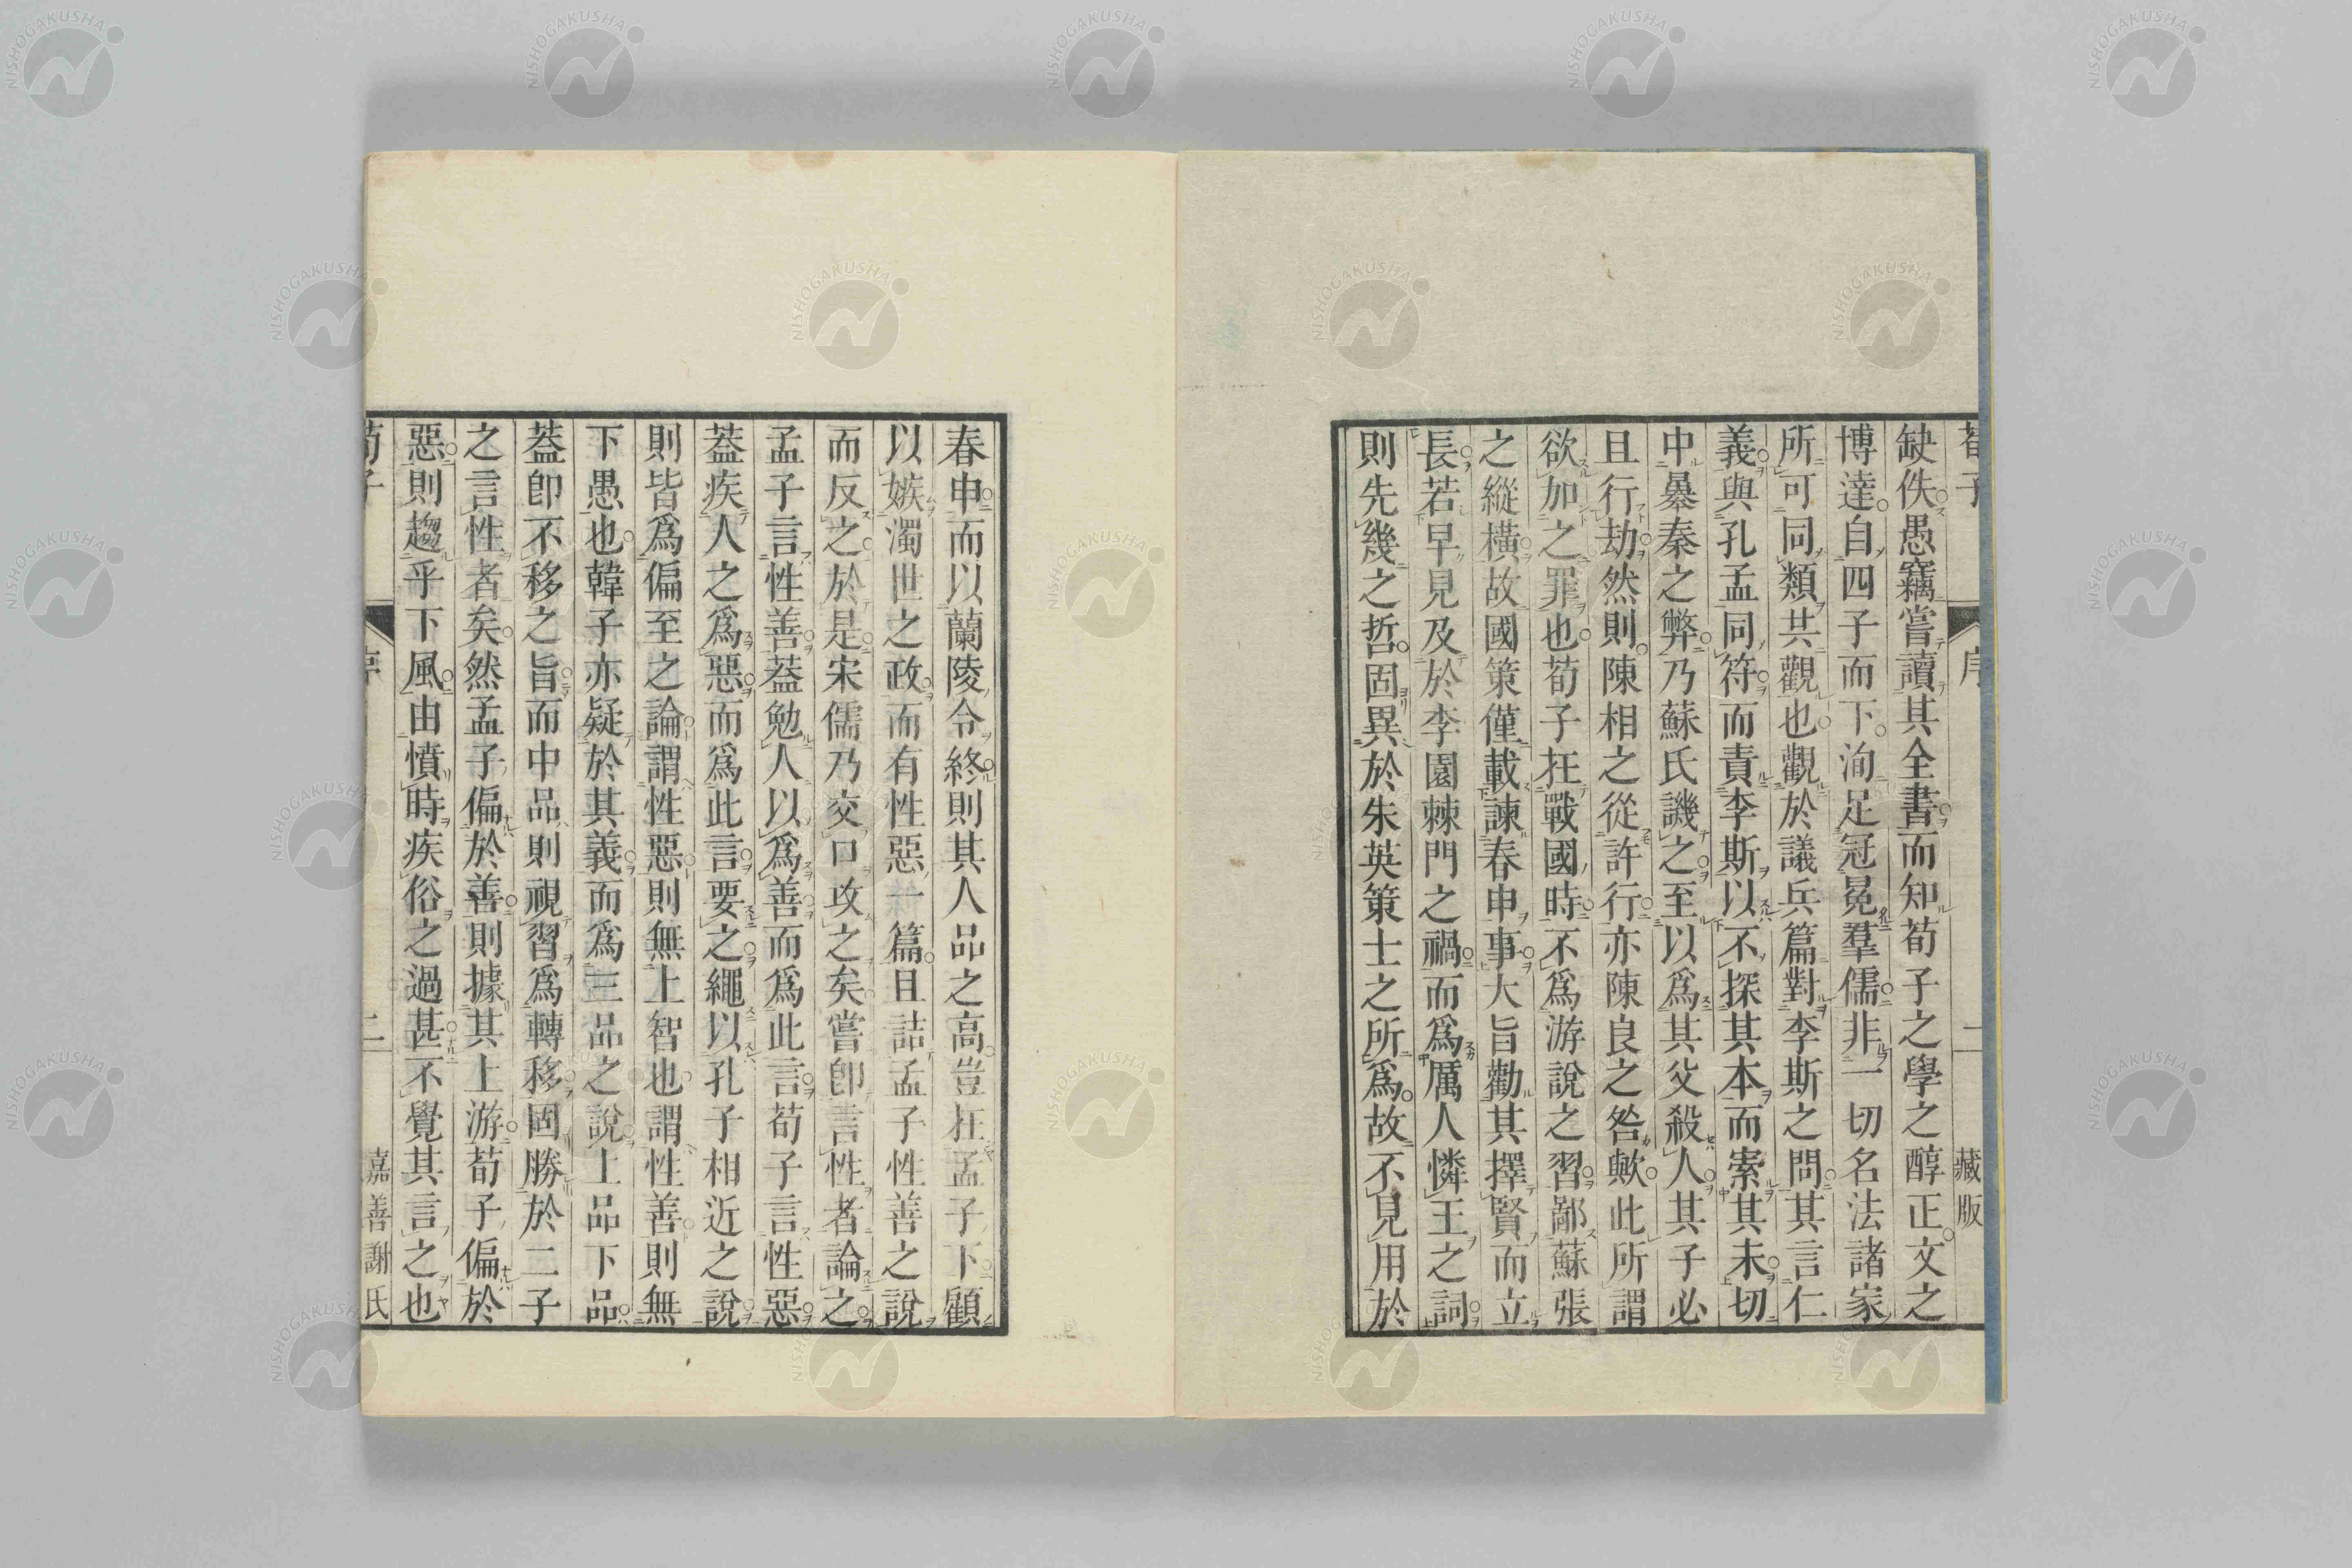 荀子
序
二
藏版
缺佚愚竊嘗讀其全書而知荀子之學之醇正文之
博達自四子而下洵足冠冕羣儒非一切名法諸家
所可同類共觀也觀於議兵篇對李斯之問其言仁
義與孔孟同符而責李斯以不探其本而索其末切
中暴秦之弊乃蘇氏譏之至以爲其父殺人其子必
且行劫然則陳相之從許行亦陳良之咎歟此所謂
欲加之罪也荀子在戰國時不爲游說之習鄙蘇張
之縱橫故國策僅載諫春申事大旨勸其擇賢而立
長若早見及於李園棘門之禍而爲厲人憐王之詞
則先幾之哲固異於朱英策士之所爲故不見用於
春申而以蘭陵令終則其人品之高豈在孟子下顧
以嫉濁世之政而有性惡一篇且詰孟子性善之說
而反之於是宋儒乃交口攻之矣嘗卽言性者論之
孟子言性善葢勉人以爲善而爲此言荀子言性惡
葢疾人之爲惡而爲此言要之繩以孔子相近之說
則皆爲偏至之論謂性惡則無上智也謂性善則無
下愚也韓子亦疑於其義而爲三品之說上品下品
葢卽不移之旨而中品則視習爲轉移固勝於二子
之言性者矣然孟子偏於善則據其上游荀子偏於
惡則趨乎下風由憤時疾俗之過甚不覺其言之也
荀子
序
二
嘉善謝氏
NISHOGAKUSHA